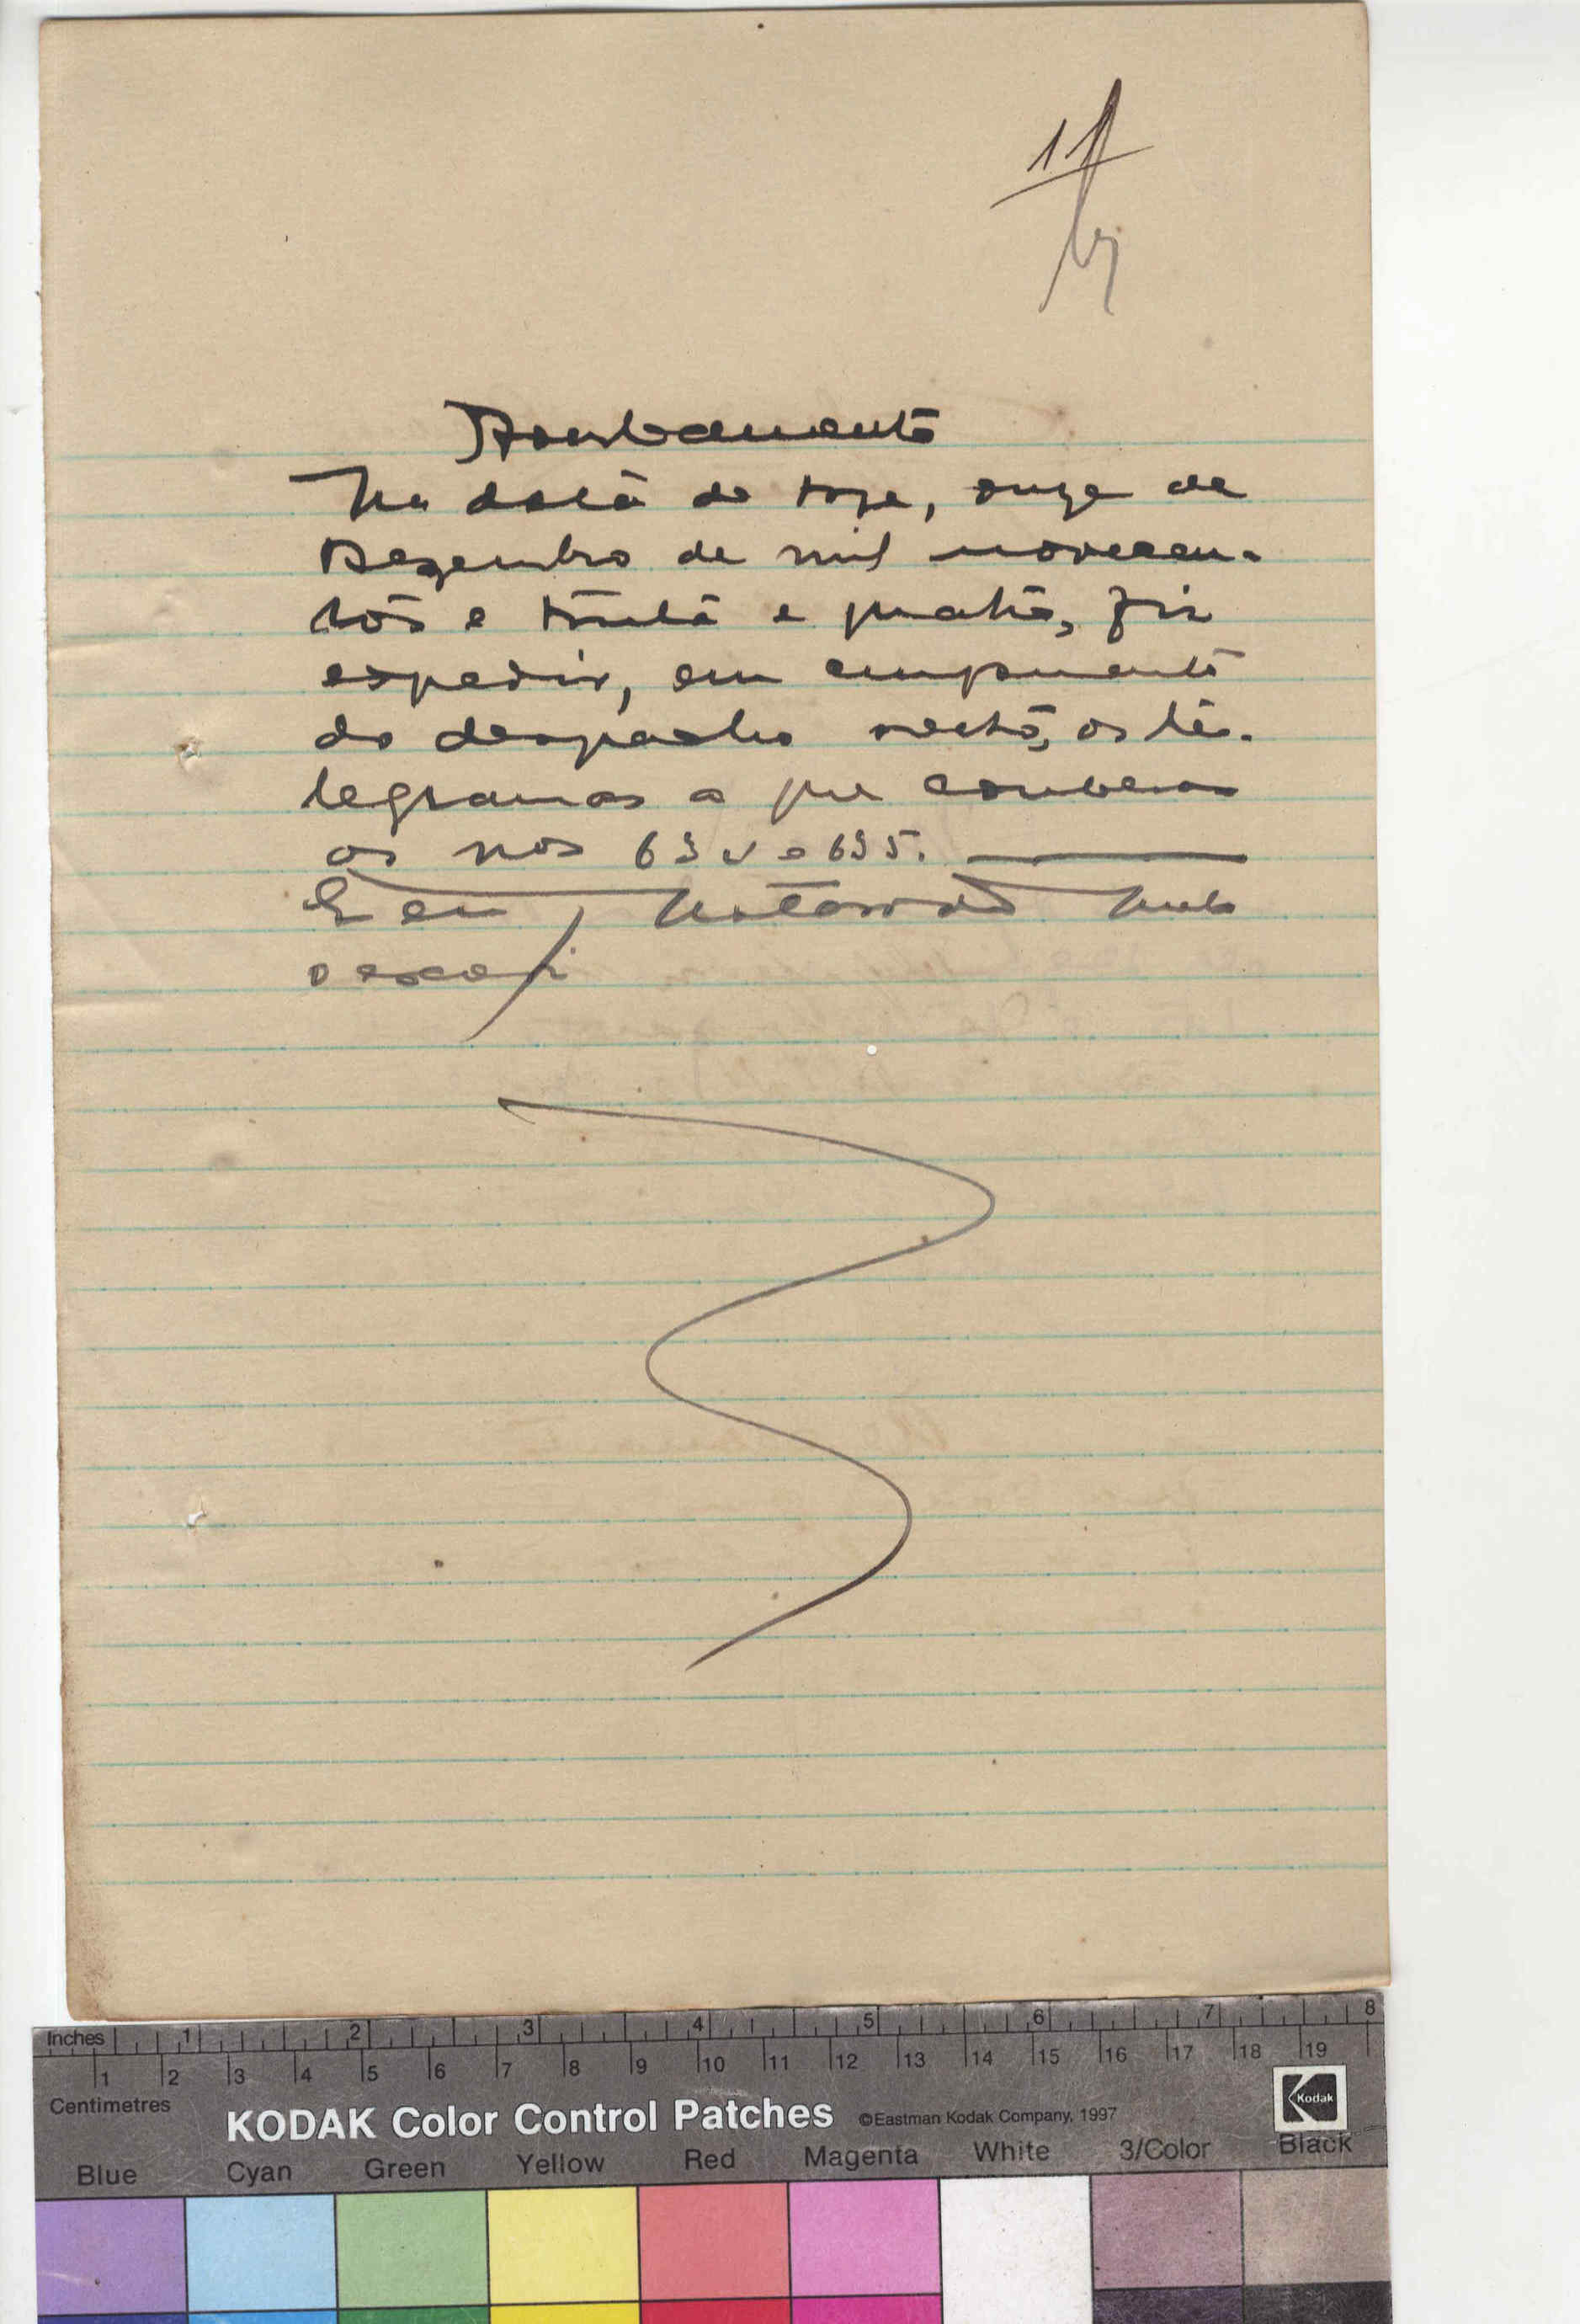 11
Na data de hoje, onze de
Dezembro de mil novecen-
tos e trinta e quatro, fiz
expedir, em cumprimento
do despacho recto, os te-
legramas a que couberam
os nos 634 e 635.
E eu,
o escrevi
Inches 1 2 3 4 5 6 7 8
1 2 3 4 5 6 7 8 9 10 11 12 13 14 15 16 17 18 19
Centimetres
KODAK Color Control Patches ©Eastman Kodak Company, 1997 Kodak
Blue Cyan Green Yellow Red Magenta White 3/Color Black